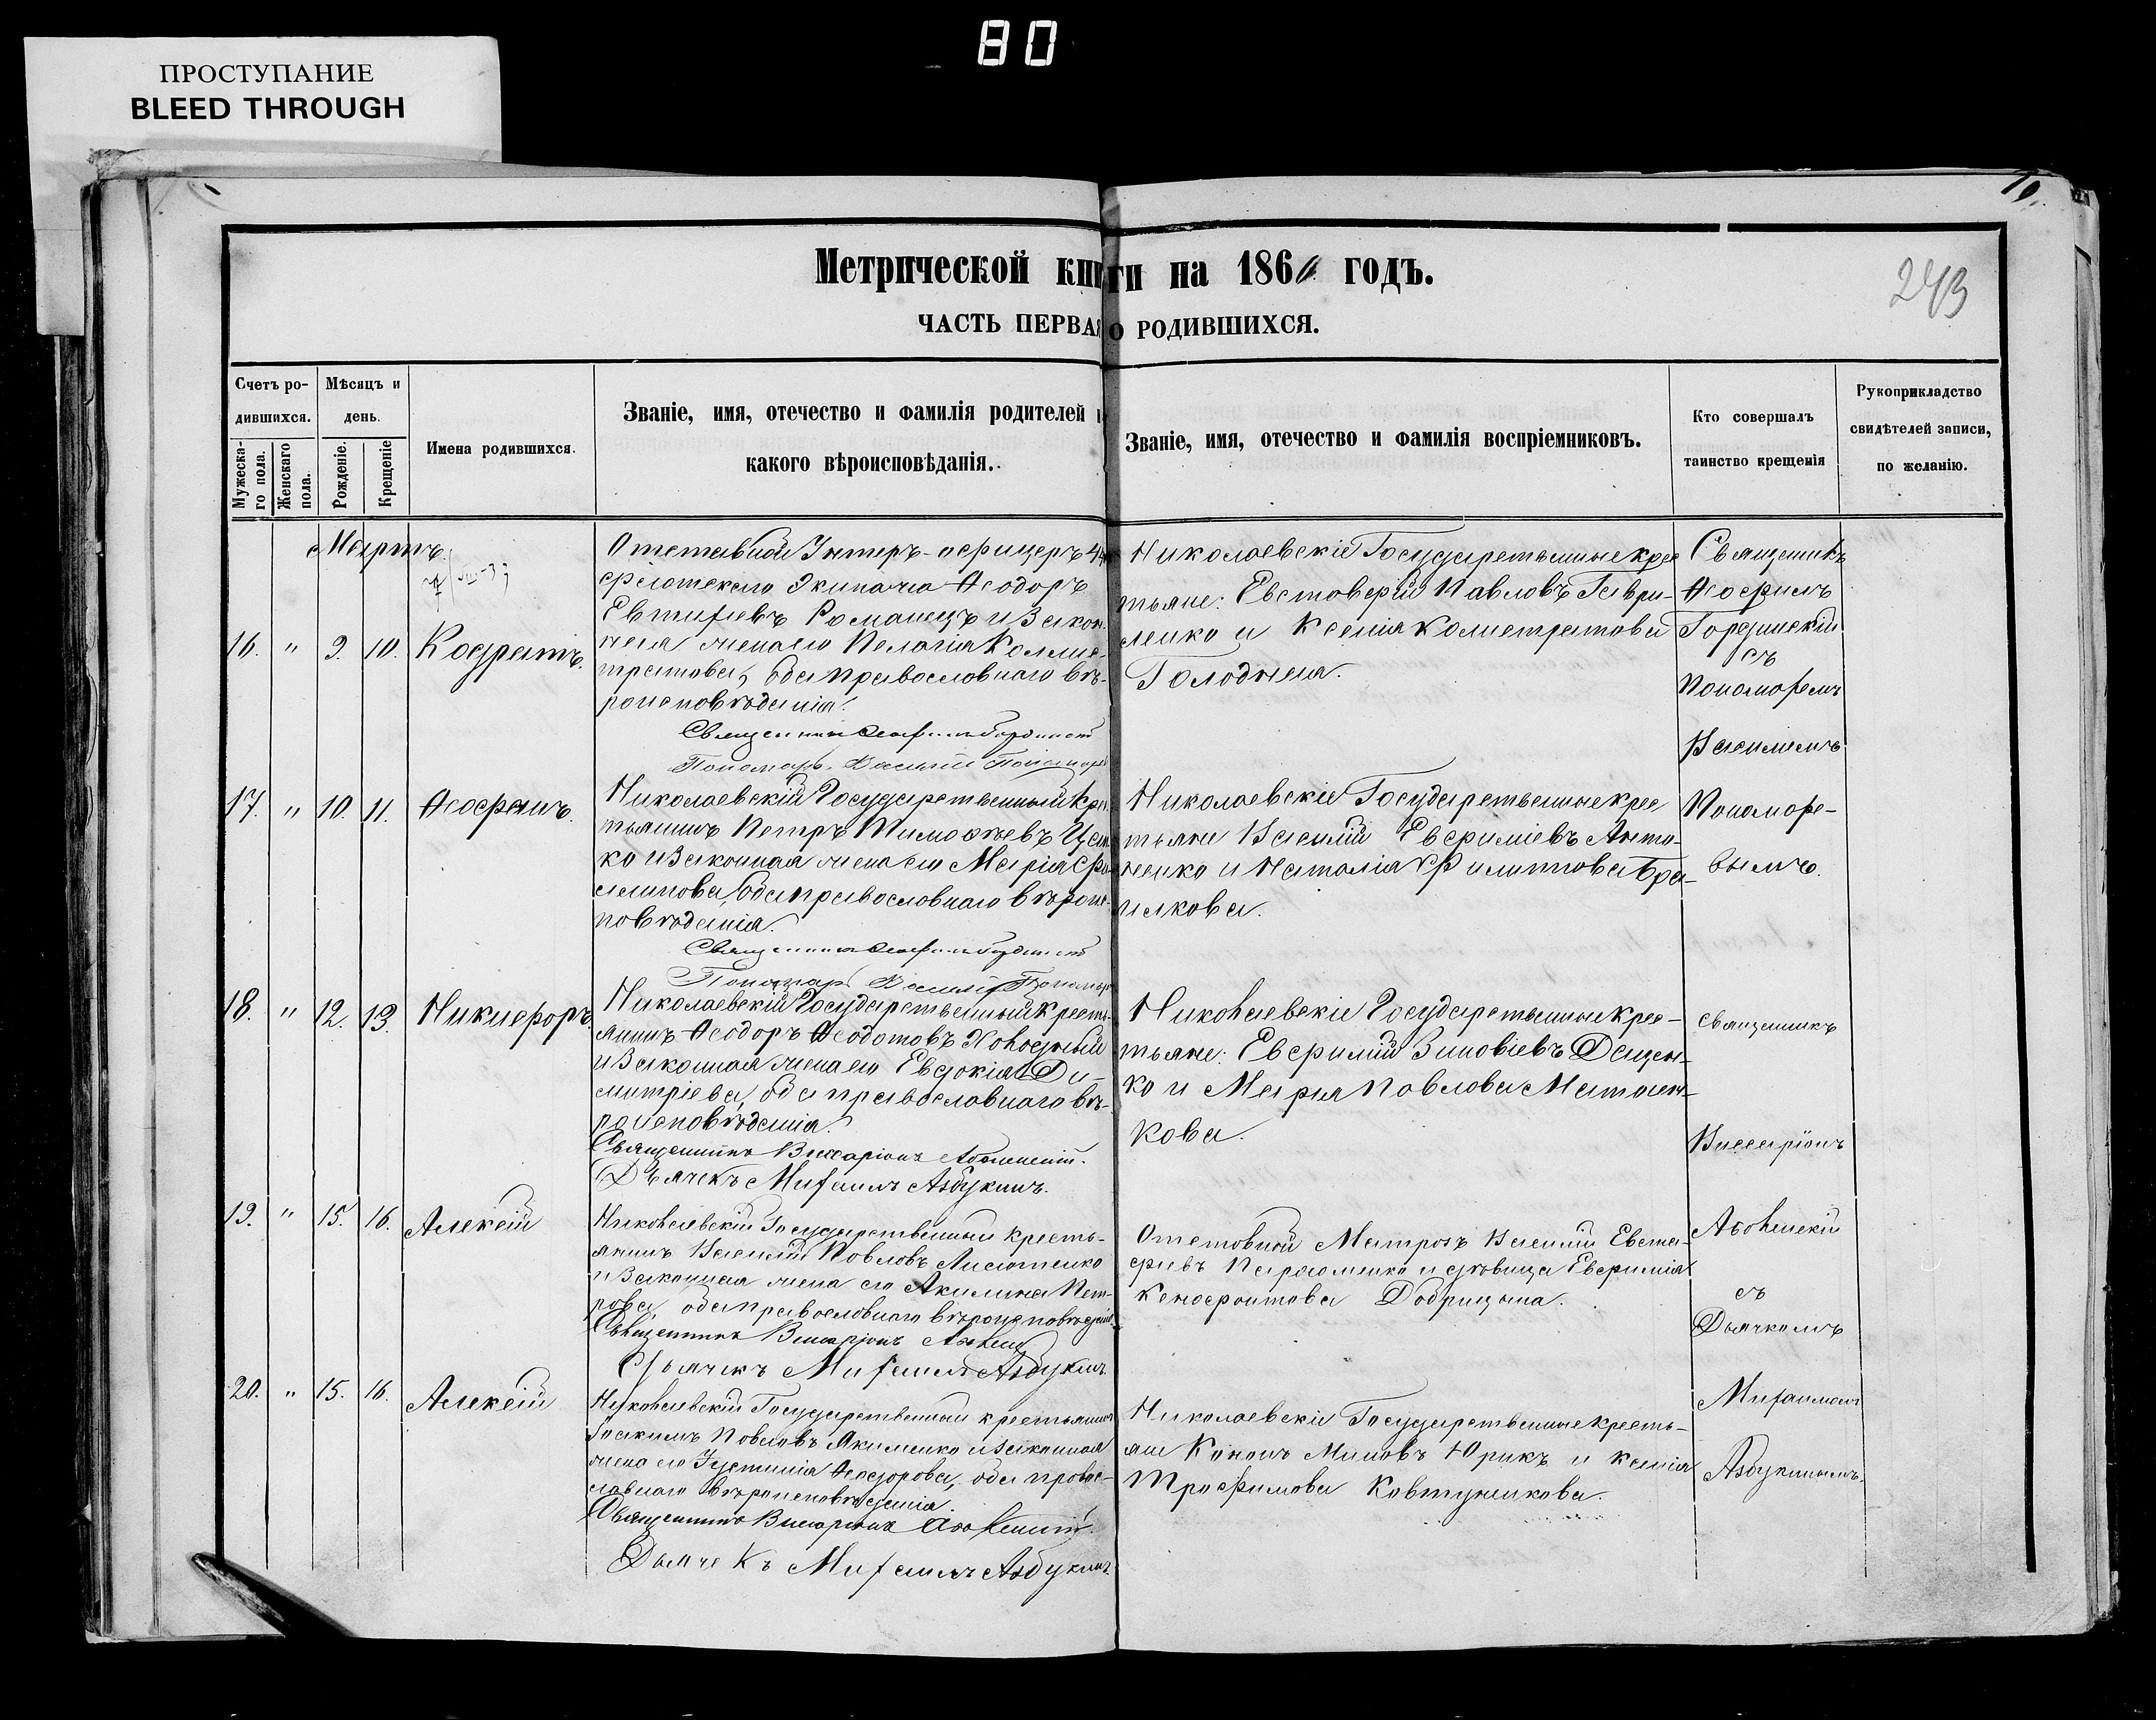 80
ПРОСТУПАНИЕ
BLEED THROUGH
10.
Метрической книги на 1860 годъ.
243
ЧАСТЬ ПЕРВАЯ О РОДИВШИХСЯ.
Счетъ ро-
дившихся.
Мужеска-
го пола.
Женскаго
пола.
Мѣсяцъ и
день.
Рожденіе.
Крещеніе
Имена родившихся.
Званіе, имя, отечество и фамилія родителей и
какого вѣроисповѣданія.
Званіе, имя, отечество и фамилія воспріемниковъ.
Кто совершалъ
таинство крещенія
Рукоприкладство
свидѣтелей записи,
по желанію.
Мартъ.
16. " 9. 10. Кодратъ.
Отставной Унтеръ-офицеръ
флотскаго Экипажа Ѳеодоръ
Евтихіевъ Романецъ и закон-
ная жена его Пелагія Калис-
тратова, оба православнаго вѣ-
роисповѣданія.
Священникъ Ѳеофилъ
Пономарь Василій Пономаре
Николаевскіе Государственные крес
тьяне: Евставерій Павловъ Гаври-
ленко и Ксенія Калистратова
Голоднева.
Священникъ
Ѳеофилъ
съ
Пономаремъ
Василіемъ
17. " 10. 11. Ѳеофанъ.
Николаевскій Государственный крес
тьянинъ Петръ Тимоѳѣевъ
ко и законная жена его Марія
оба православнаго вѣроис-
повѣданія.
Священникъ Ѳеофилъ
Пономарь Василій Пономар
Николаевскіе Государственные крес
тьяне Василій Евфиміевъ Анто-
ненко и Наталія Филиппова Бра-
илкова.
Пономаре-
вымъ.
18. " 12. 13. Никифоръ.
Николаевскій Государственный кресть-
янинъ Ѳеодоръ Ѳеодотовъ Холодный
и законная жена его Евдокія Ди-
митріева, оба православнаго вѣ-
роисповѣданія.
Священникъ Виссаріонъ Аболенскій.
Дьячекъ Михаилъ Азбукинъ.
Николаевскіе Государственные крес-
тьяне: Евфимій Зиновіевъ Дацен-
ко и Марія Павлова Матвіен-
кова.
священникъ
Виссаріонъ
19. " 15. 16. Алексій
Николаевскій Государственный кресть-
янинъ Василій Павловъ
и законная жена его Акилина Пет-
рова, оба православнаго вѣроисповѣданія
Священникъ Виссаріонъ
Дьячекъ Михаилъ Азбукинъ.
Отставной Матрозъ Василій Евста-
фіевъ Пархоменко и дѣвица Евфимія
Ксенофонтова Добрицына.
Аболенскій
съ
Дьячкомъ
20. " 15. 16. Алексій
Николаевскій Государственный крестьянинъ
Іоакимъ Павловъ Якименко и законная
жена его Іустинія Ѳеодорова, оба право-
славнаго вѣроисповѣданія.
Священникъ Виссаріонъ Аболенскій.
Дьячекъ Михаилъ Азбукинъ.
Николаевскіе Государственные кресть-
яне Кононъ Миновъ Юрикъ и Ксенія
Трофимова Ковтуненкова.
Михаиломъ
Азбукинымъ.